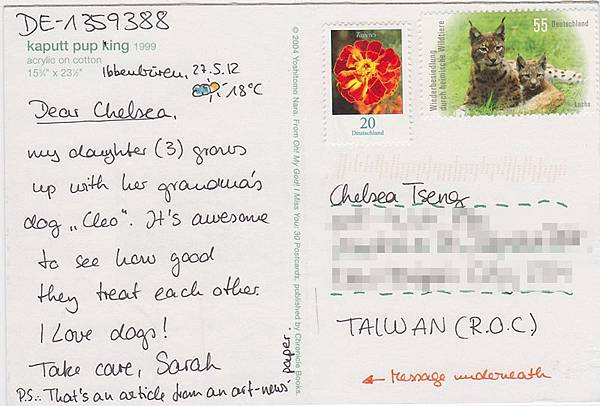 DE-1359388
kaputt pup king 1999
acrylic on cotton
15¾" x 23½"
Ibbenbüren, 27.5.12
18°C
Dear Chelsea,
my daughter (3) grows
up with her grandma's
dog „Cleo". It's awesome
to see how good
they treat each other.
I Love dogs!
Take care, Sarah
P.S.: That's an article from an art-news-
paper.
© 2004 Yoshitomo Nara. From Oh! My God! I Miss You: 30 Postcards, published by Chronicle Books.
Tagetes
20
Deutschland
55 Deutschland
Wiederbesiedlung
durch heimische Wildtiere
Luchs
Chelsea Tseng
TAIWAN (R.O.C)
← Message underneath